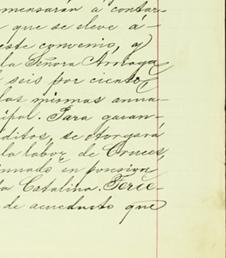 mensarán á contar
que se eleve á-
este convenio, y
la Señora Arroya
seis por ciento
las mismas anua-
cipal. Para garan-
ditos, se otorgará
la labor de Cruces,
en posesion
Catalina. Terce-
de acueducto que